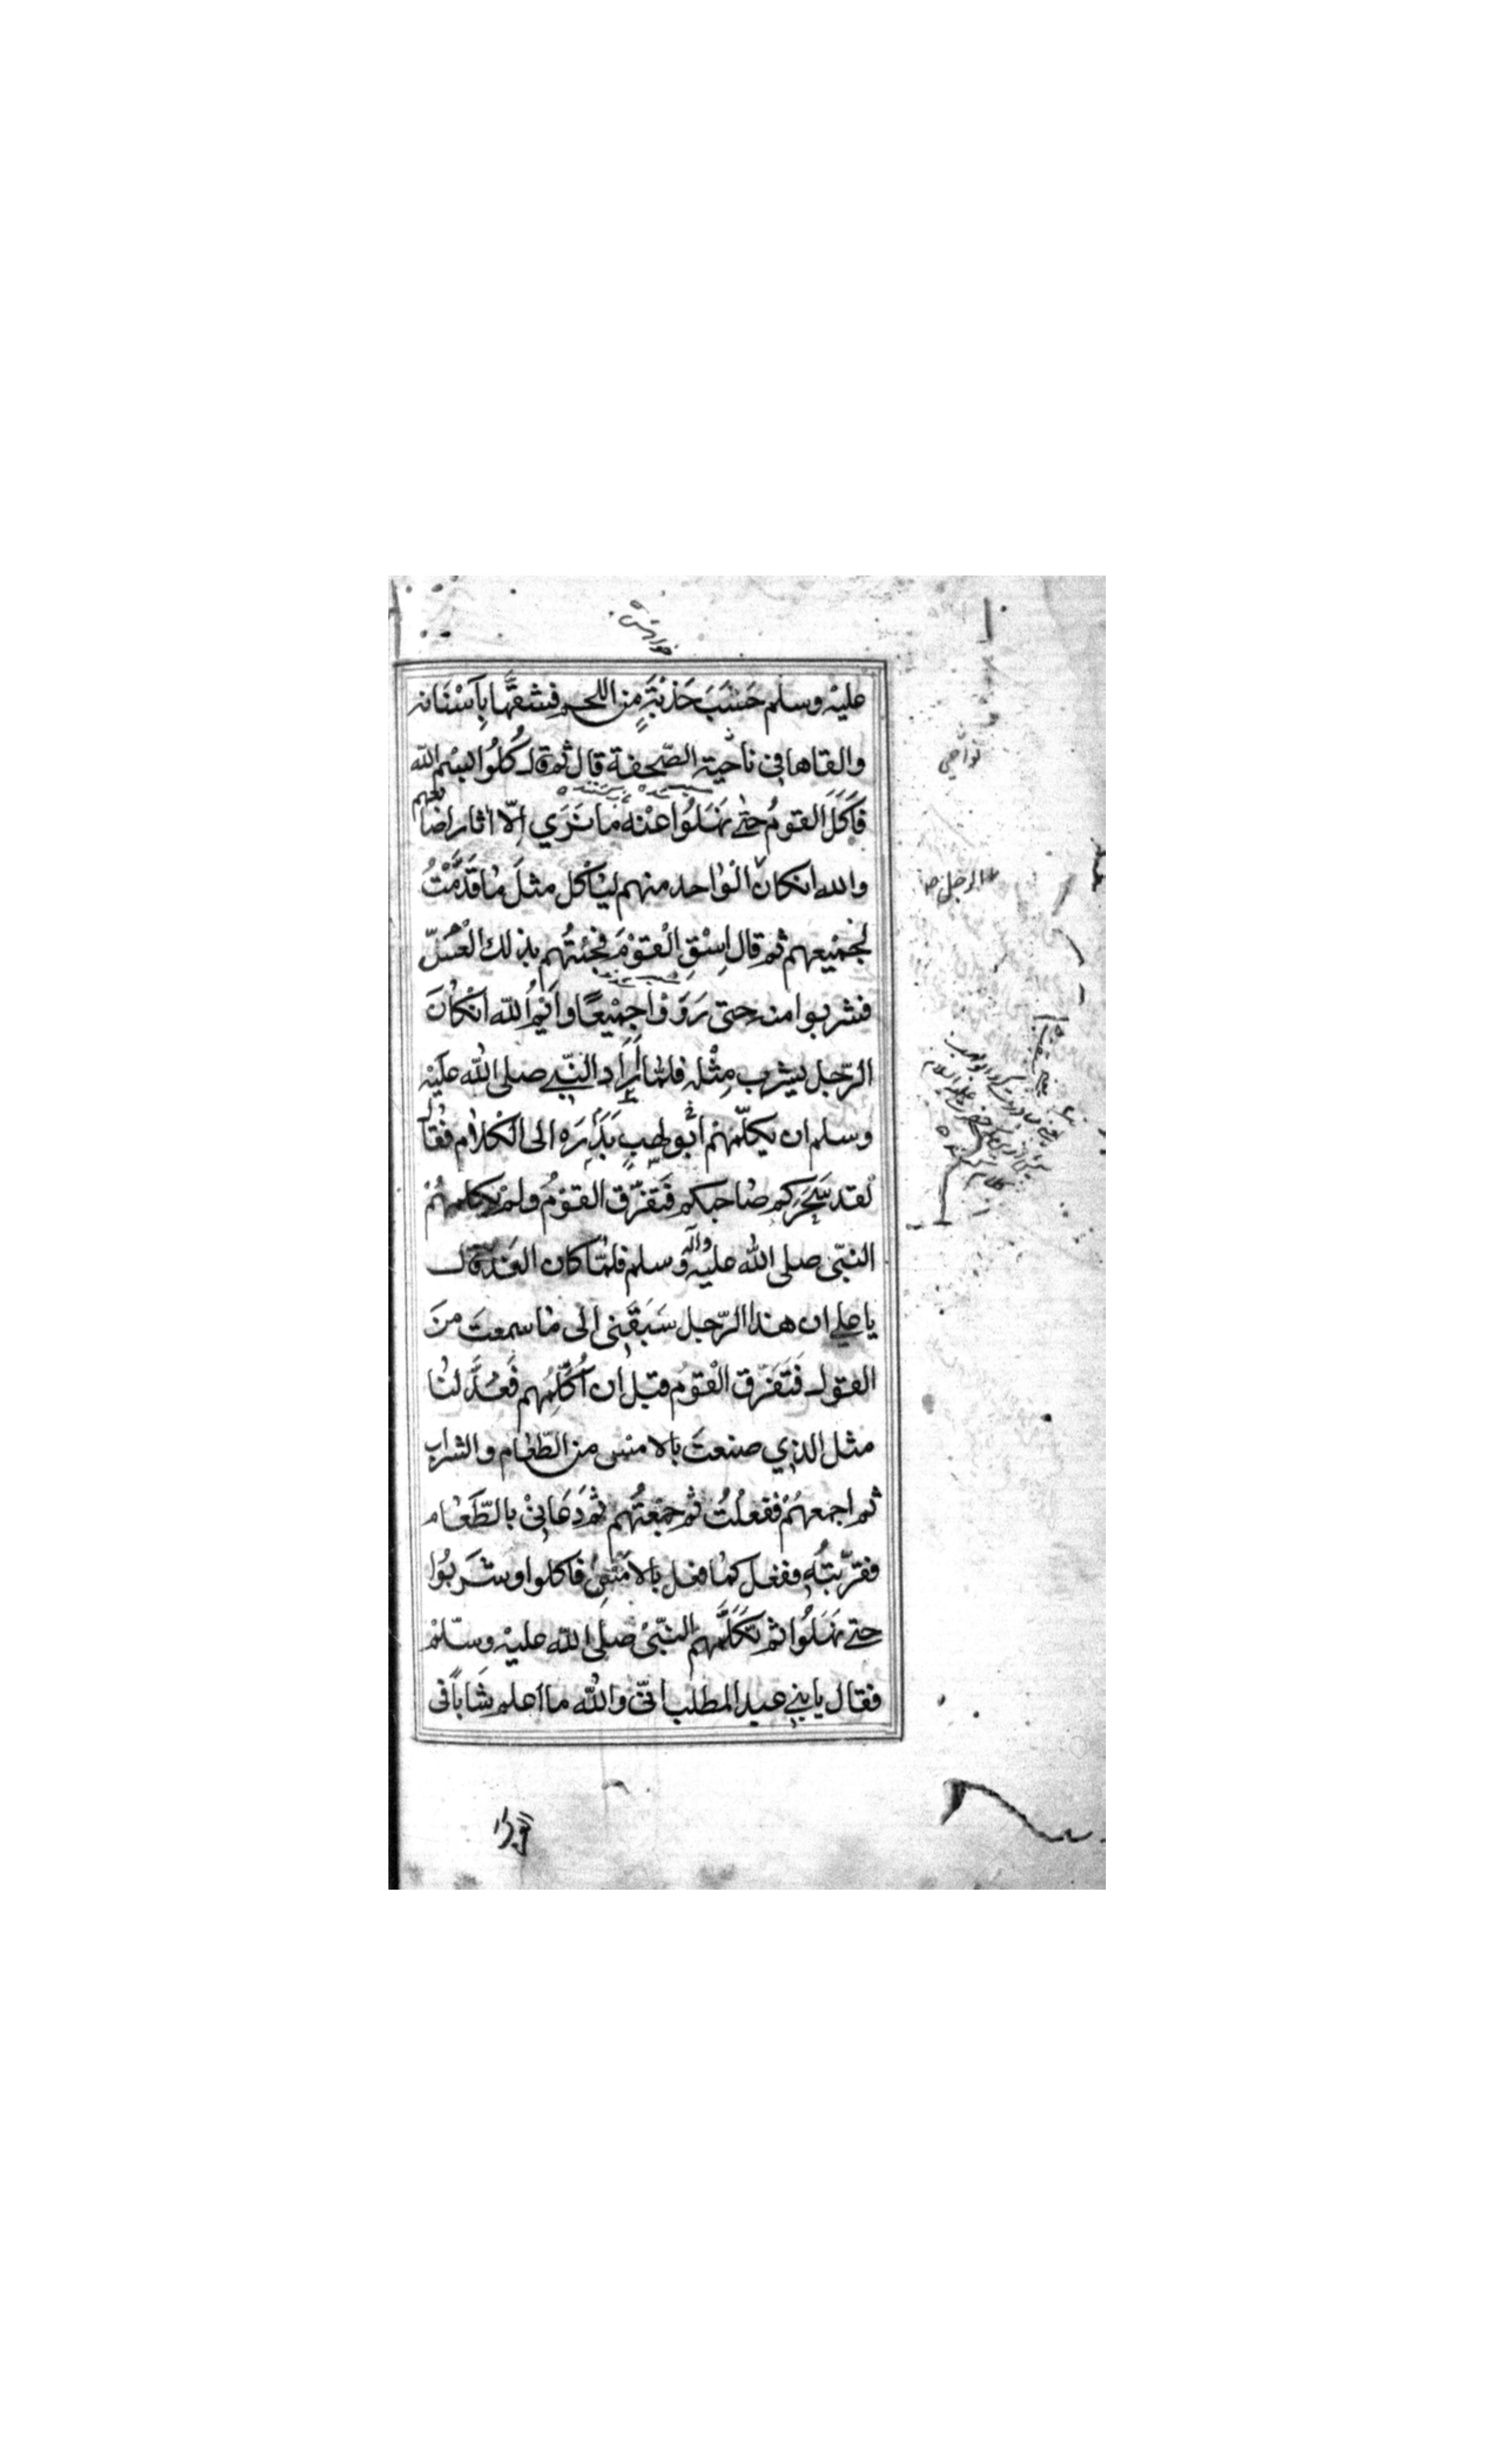 عليه وسلم حَسَبَ حَذْبَةً مِن اللحم فشقَّها بِاَسْنَانه
والقاها فى ناحية الصّحفة قال ثم قال كُلُوا بسْم الله
فَاَكَلَ القومُ حتى نَهَلُوا عنْه مَا نَرَي اِلّا اثار اضَا بعهم
والله انكان الوٰاحد منهم ليَاْكل مثلَ مٰا قَدَّمْتُ
لجميْعهم ثم قال اِسْقِ الْقوْمَ فجئتُهم بذلك الْعُسّ
فشربوا منه حتى رَوَوْا جميْعًا واَيْمُ اللّه انْكٰانَ
الرّجل ليشرب مِثْله فلمّا اَرَاد النّبي صلى اللّه عليْه
وسلم ان يكلّمهمْ ابُولهبٍ بَدَرَه الى الْكلاٰم فقٰال
لقد سَحَرَكم صٰاحبكم فَتَفَرَّق القوْمُ ولمْ يكلمهُمْ
النبّى صلى اللّه عليْه وآله وسلم فلمّا كان الغَد قال
يا على ان هذا الرّجل سَبَقَنى الى مٰا سمعتَ منَ
القول فَتَفَرّق الْقومُ قبل ان اُكَلِّمُهم فَعُدَّ لنٰا
مثل الذي صنعتَ بالامْسِ من الطّعٰام والشراب
ثم اجمعهُمْ ففعلْتُ ثم جمعْتُهم ثُمّ دَعَانِىْ بالطّعَام
فقرّبتُه ففعل كمٰا فعل بالامْسِ فاكلوا وشَربُوا
حتى نَهَلُوا ثم تكَلَّمهم النّبىْ صلى اللّه عليْه وسلّمْ
فقال يا بنى عبد المطلب انّى واللّه ما اعلم شَابًا فى
نواحى
الرجل ص